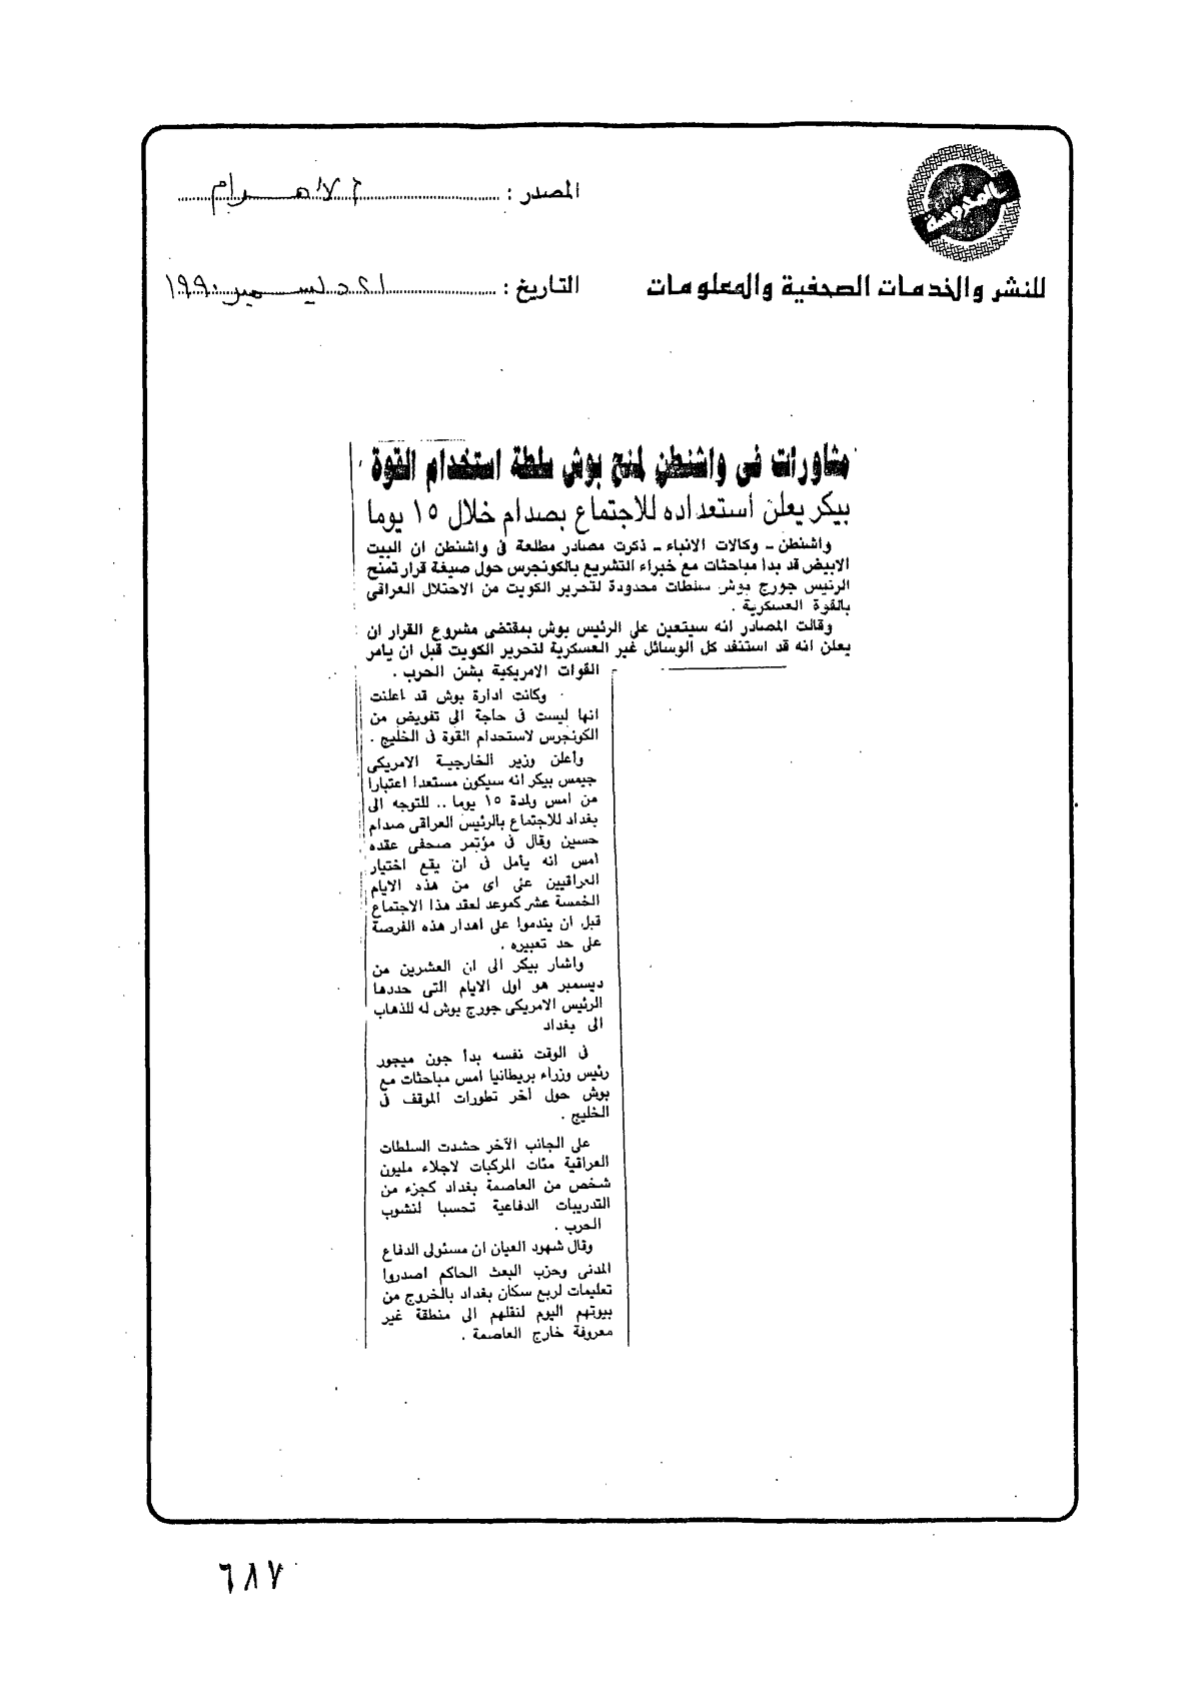 المحروسة
للنشر والخدمات الصحفية والمعلومات
المصدر : الاهرام
التاريخ : ٢١ ديسمبر ١٩٩٠
مشاورات فى واشنطن لمنح بوش سلطة استخدام القوة
بيكر يعلن استعداده للاجتماع بصدام خلال ١٥ يوما
واشنطن ـ وكالات الانباء ـ ذكرت مصادر مطلعة فى واشنطن ان البيت
الابيض قد بدا مباحثات مع خبراء التشريع بالكونجرس حول صيغة قرار تمنح
الرئيس جورج بوش سلطات محدودة لتحرير الكويت من الاحتلال العراقى
بالقوة العسكرية .
وقالت المصادر انه سيتعين على الرئيس بوش بمقتضى مشروع القرار ان
يعلن انه قد استنفد كل الوسائل غير العسكرية لتحرير الكويت قبل ان يامر
القوات الامريكية بشن الحرب .
وكانت ادارة بوش قد اعلنت
انها ليست فى حاجة الى تفويض من
الكونجرس لاستخدام القوة فى الخليج .
وأعلن وزير الخارجية الامريكى
جيمس بيكر انه سيكون مستعدا اعتبارا
من امس ولمدة ١٥ يوما .. للتوجه الى
بغداد للاجتماع بالرئيس العراقى صدام
حسين وقال فى مؤتمر صحفى عقده
امس انه يأمل فى ان يقع اختيار
العراقيين على اى من هذه الايام
الخمسة عشر كموعد لعقد هذا الاجتماع
قبل ان يندموا على اهدار هذه الفرصة
على حد تعبيره .
واشار بيكر الى ان العشرين من
ديسمبر هو اول الايام التى حددها
الرئيس الامريكى جورج بوش له للذهاب
الى بغداد
فى الوقت نفسه بدأ جون ميجور
رئيس وزراء بريطانيا امس مباحثات مع
بوش حول آخر تطورات الموقف فى
الخليج .
على الجانب الآخر حشدت السلطات
العراقية مئات المركبات لاجلاء مليون
شخص من العاصمة بغداد كجزء من
التدريبات الدفاعية تحسبا لنشوب
الحرب .
وقال شهود العيان ان مسئولى الدفاع
المدنى وحزب البعث الحاكم اصدروا
تعليمات لربع سكان بغداد بالخروج من
بيوتهم اليوم لنقلهم الى منطقة غير
معروفة خارج العاصمة .
٦٨٧